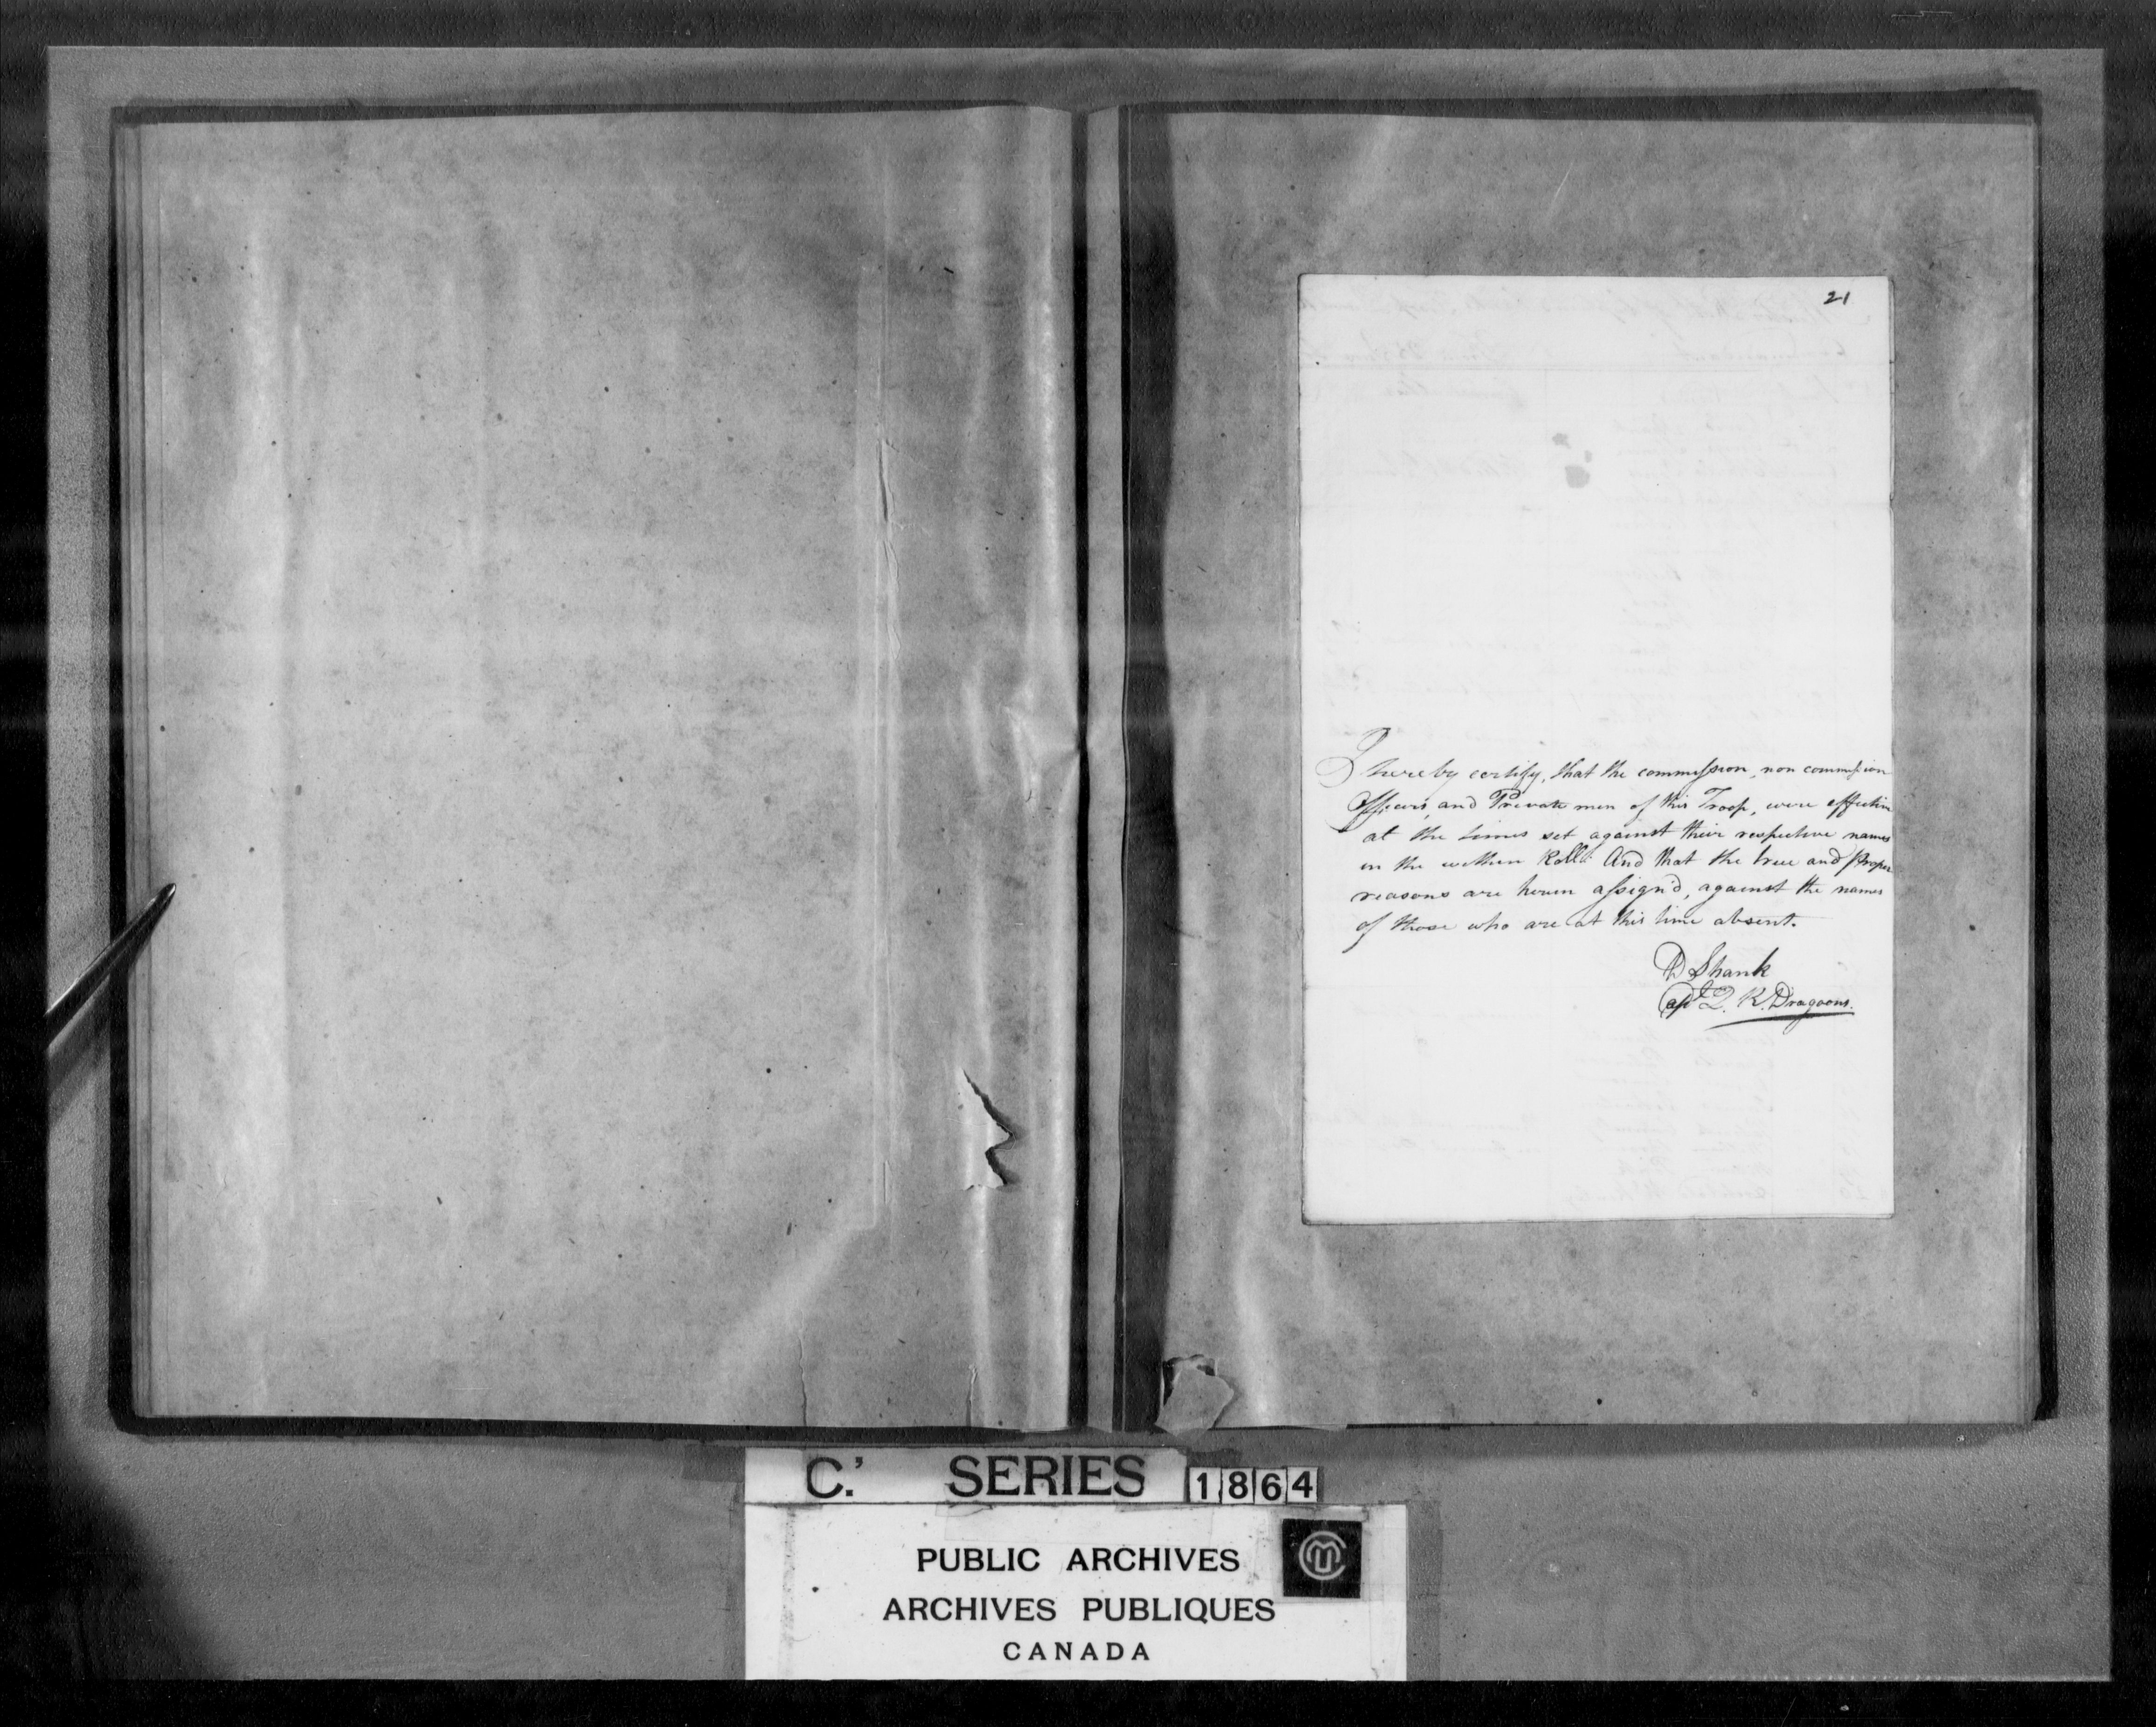 21
I hereby certify, that the commission, non commission
Officers, and Private men of this Troop, were effective
at the times set against their respective names
in the within Roll: And that the true and proper
reasons are herein assign'd, against the names
of those who are at this time absent.
D Shank
Capt Q. R. Dragoons.
C.' SERIES 1864
PUBLIC ARCHIVES
ARCHIVES PUBLIQUES
CANADA